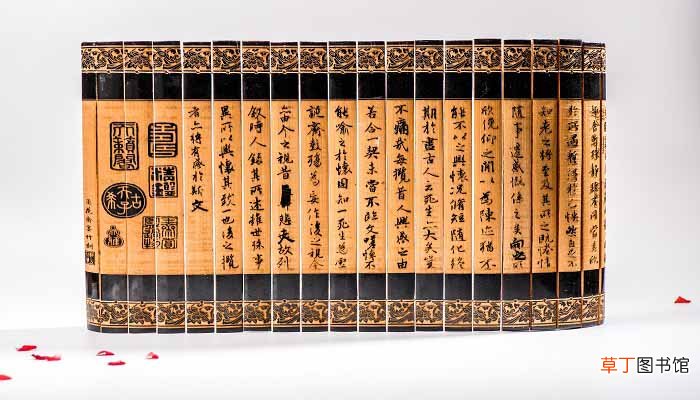 趣舍萬殊靜躁不同當其欣
於所遇蹔得於己怏然自足不
知老之將至及其所之既惓情
隨事遷感慨係之矣向之所
欣俛仰之閒以為陳迹猶不
能不以之興懷況脩短隨化終
期於盡古人云死生亦大矣豈
不痛哉每攬昔人興感之由
若合一契未嘗不臨文嗟悼不
能喻之於懷固知一死生為虛
誕齊彭殤為妄作後之視今
亦由今之視昔悲夫故列
敘時人錄其所述雖世殊事
異所以興懷其致一也後之攬
者亦將有感於斯文
草丁图书馆